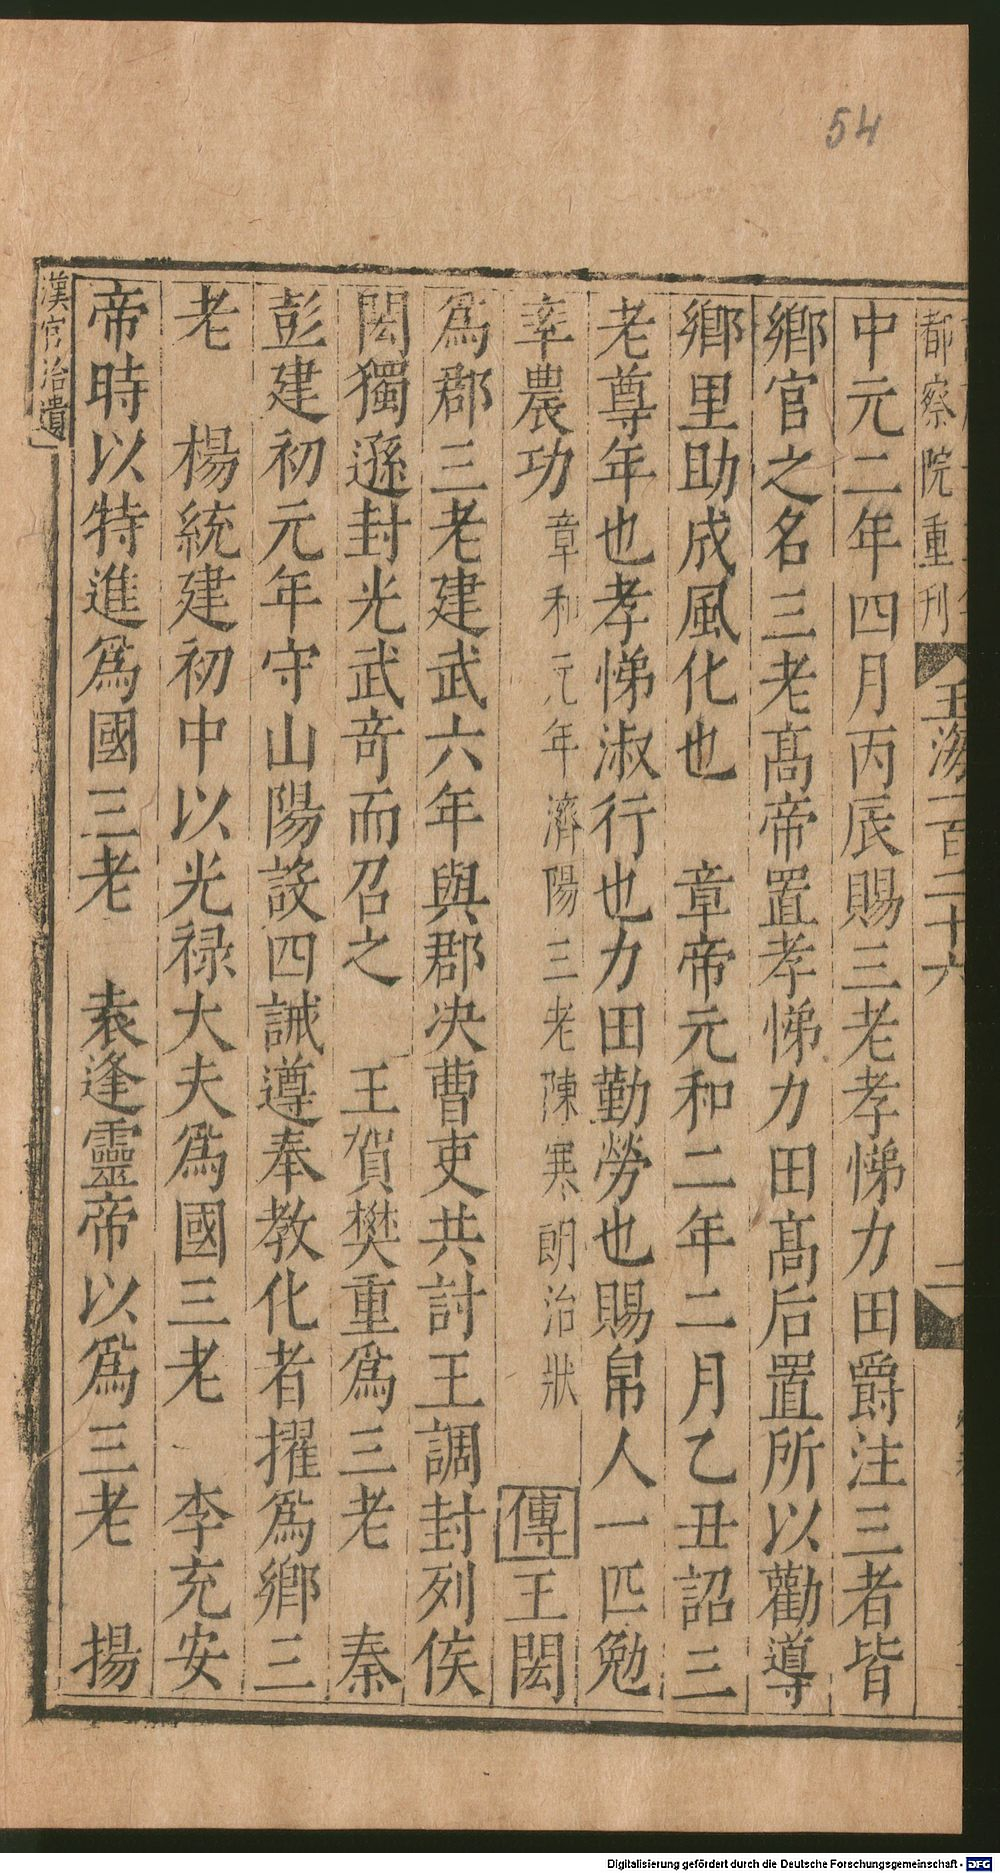 54
都察院重刊
玉海一百三十六
二
中元二年四月丙辰賜三老孝悌力田爵注三者皆
鄉官之名三老髙帝置孝悌力田髙后置所以勸導
鄉里助成風化也　章帝元和二年二月乙丑詔三
老尊年也孝悌淑行也力田勤勞也賜帛人一匹勉
率農功章和元年濟陽三老陳寒朗治狀　傳王閎
爲郡三老建武六年與郡决曹吏共討王調封列侯
閎獨遜封光武竒而召之　王賀樊重爲三老　秦
彭建初元年守山陽設四誡遵奉教化者擢爲鄉三
老　楊統建初中以光禄大夫爲國三老　李充安
帝時以特進爲國三老　袁逢靈帝以爲三老　揚
漢官治遺
Digitalisierung gefördert durch die Deutsche Forschungsgemeinschaft - DFG